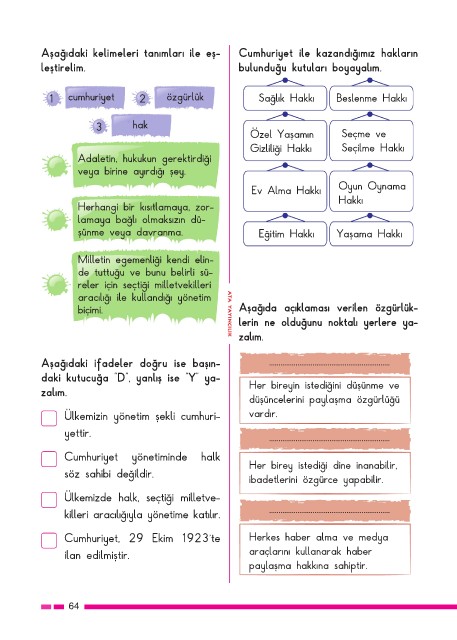 Aşağıdaki kelimeleri tanımları ile eş-
leştirelim.
1 cumhuriyet
2 özgürlük
3 hak
Adaletin, hukukun gerektirdiği
veya birine ayırdığı şey.
Herhangi bir kısıtlamaya, zor-
lamaya bağlı olmaksızın dü-
şünme veya davranma.
Milletin egemenliği kendi elin-
de tuttuğu ve bunu belirli sü-
reler için seçtiği milletvekilleri
aracılığı ile kullandığı yönetim
biçimi.
Aşağıdaki ifadeler doğru ise başın-
daki kutucuğa "D", yanlış ise "Y" ya-
zalım.
Ülkemizin yönetim şekli cumhuri-
yettir.
Cumhuriyet yönetiminde halk
söz sahibi değildir.
Ülkemizde halk, seçtiği milletve-
killeri aracılığıyla yönetime katılır.
Cumhuriyet, 29 Ekim 1923'te
ilan edilmiştir.
ATA YAYINCILIK
Cumhuriyet ile kazandığımız hakların
bulunduğu kutuları boyayalım.
Sağlık Hakkı
Beslenme Hakkı
Özel Yaşamın
Gizliliği Hakkı
Seçme ve
Seçilme Hakkı
Ev Alma Hakkı
Oyun Oynama
Hakkı
Eğitim Hakkı
Yaşama Hakkı
Aşağıda açıklaması verilen özgürlük-
lerin ne olduğunu noktalı yerlere ya-
zalım.
..................................................
Her bireyin istediğini düşünme ve
düşüncelerini paylaşma özgürlüğü
vardır.
..................................................
Her birey istediği dine inanabilir,
ibadetlerini özgürce yapabilir.
..................................................
Herkes haber alma ve medya
araçlarını kullanarak haber
paylaşma hakkına sahiptir.
64